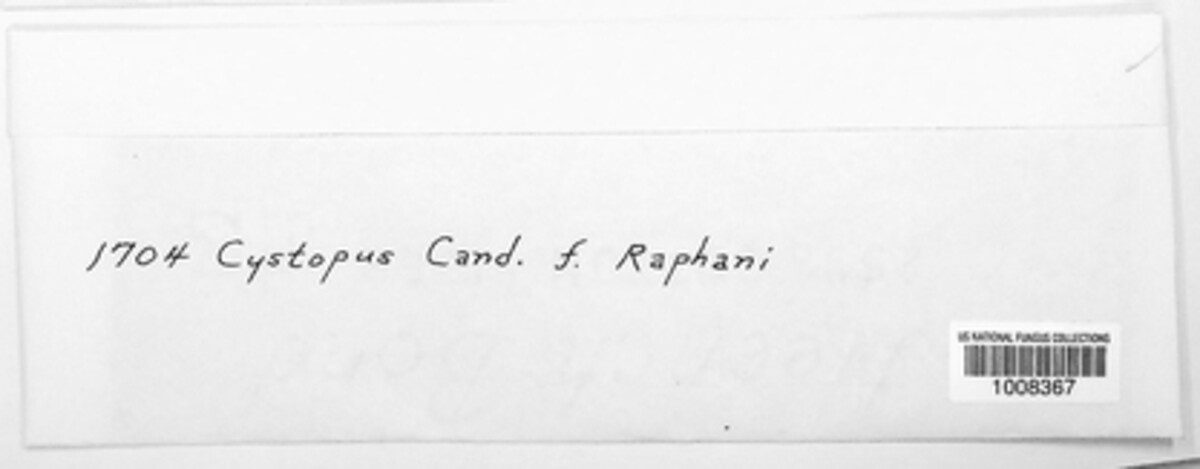 1704 Cystopus Cand. f. Raphani
US NATIONAL FUNGUS COLLECTIONS
1008367